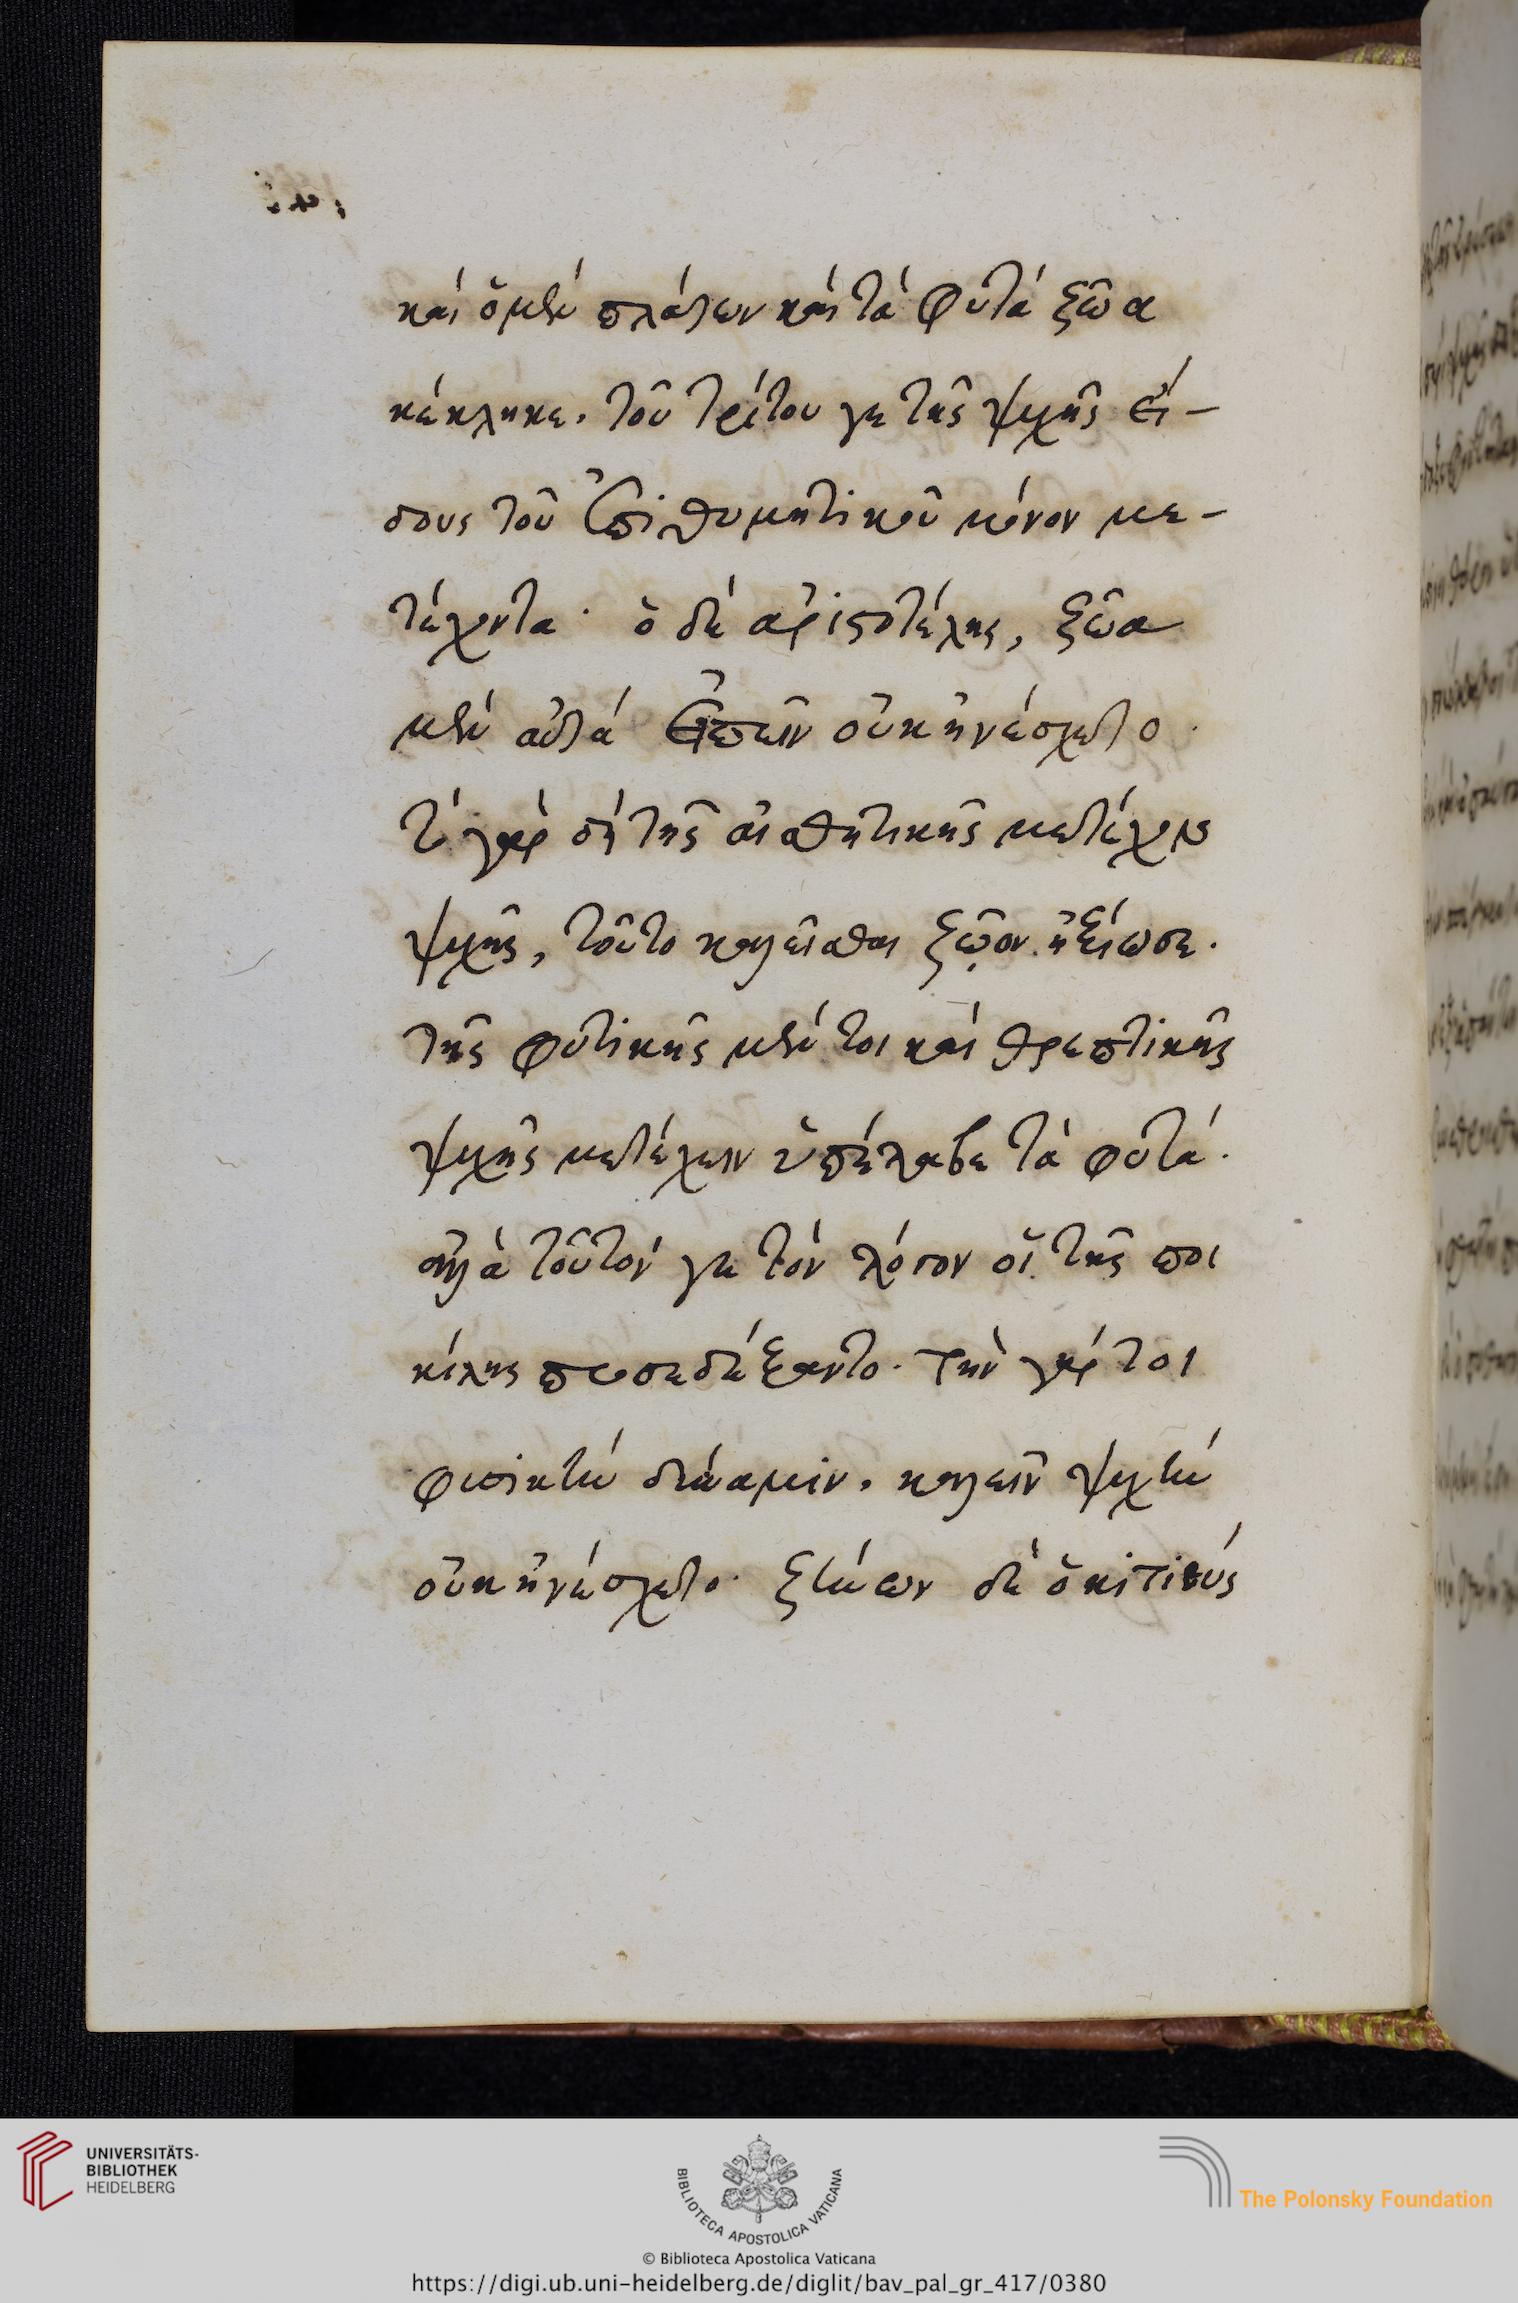 καὶ ὁ μὲν πλάτων καὶ τὰ φυτὰ ζῶα
κέκληκε. τοῦ τρίτου γε τῆς ψυχῆς εἴ-
δους τοῦ ἐπιθυμητικοῦ μόνον με-
τέχοντα· ὁ δὲ ἀριστοτέλης, ζῶα
μὲν αὐτὰ εἰπεῖν οὐκ ἠνέσχετο·
τὸ γὰρ δὴ τῆς αἰσθητικῆς μετέχον
ψυχῆς, τοῦτο καλεῖσθαι ζῷον ἠξίωσε.
τῆς φυτικῆς μέν τοι καὶ θρεπτικῆς
ψυχῆς μετέχειν ὑπέλαβε τὰ φυτά.
ἀλλὰ τοῦτόν γε τὸν λόγον οἱ τῆς ποι
κίλης προσεδέξαντο. τὴν γάρ τοι
φυσικὴν δύναμιν. καλεῖν ψυχὴν
οὐκ ἠνέσχετο. ζήνων δὲ ὁ κιτιεὺς
UNIVERSITÄTS-
BIBLIOTHEK
HEIDELBERG
BIBLIOTECA APOSTOLICA VATICANA
The Polonsky Foundation
© Biblioteca Apostolica Vaticana
https://digi.ub.uni-heidelberg.de/diglit/bav_pal_gr_417/0380